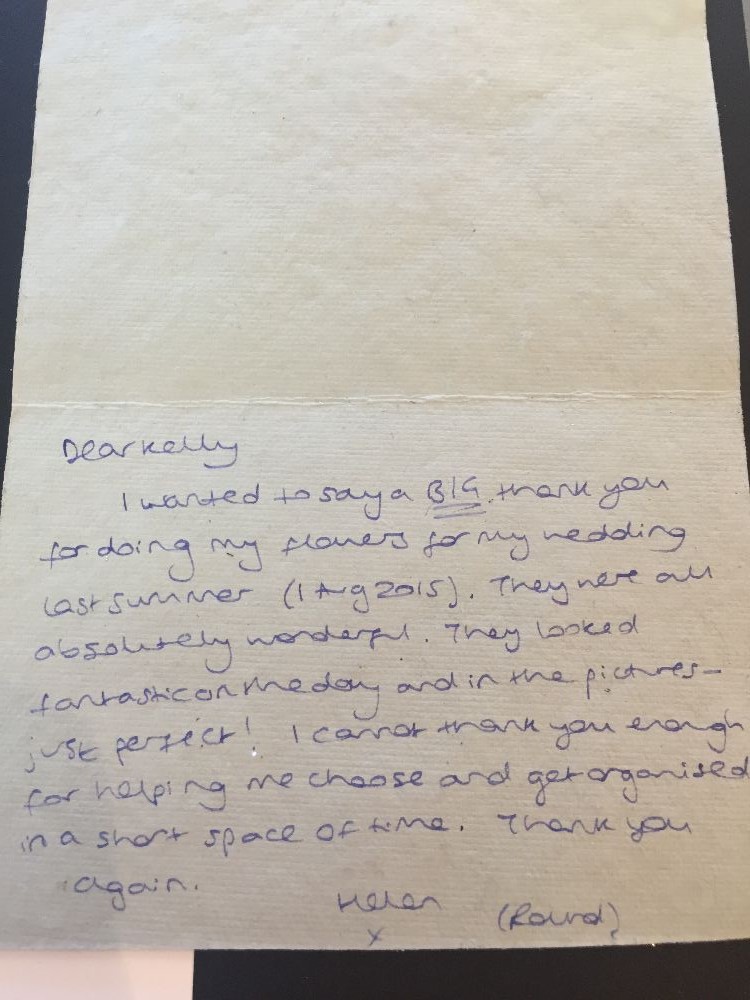 Dear Kelly
I wanted to say a BIG thank you
for doing my flowers for my wedding
last summer (1 Aug 2015). They were all
absolutely wonderful. They looked
fantastic on the day and in the pictures -
just perfect! I cannot thank you enough
for helping me choose and get organised
in a short space of time. Thank you
again.
Helen (Round)
x